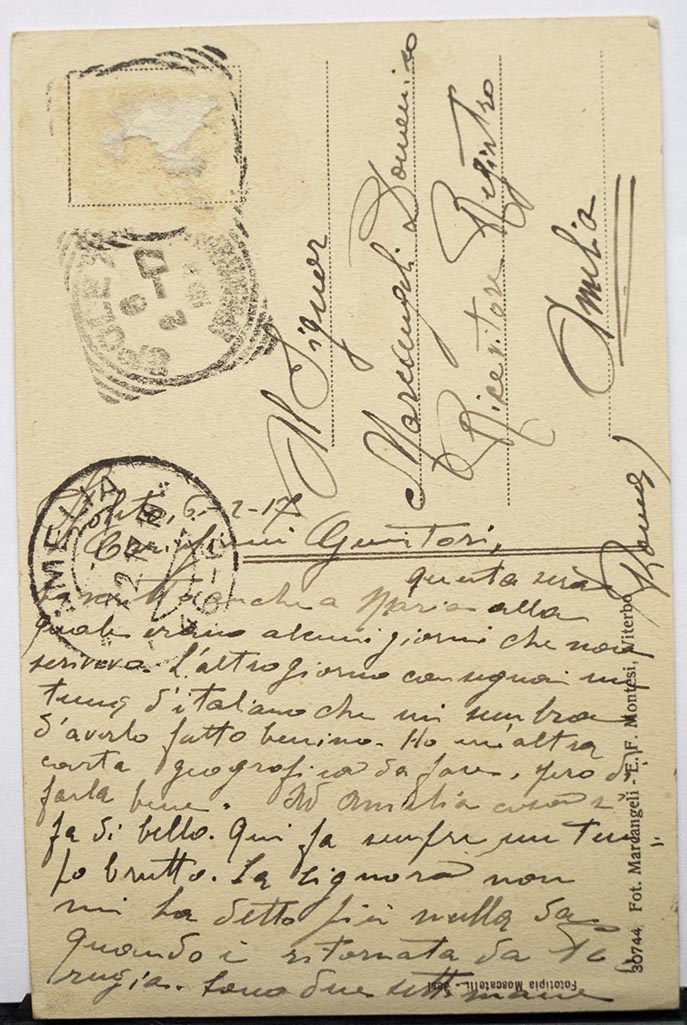 Al Signor
Marcangeli Domenico
Ricevitore Registro
Amelia
(Roma)
SPOLETO
AMELIA
2.17
Spoleto, 6-2-17
Carissimi Genitori,
questa sera
anche a Maria alla
quale erano alcuni giorni che non
scrivevo. L'altro giorno consegnai un
tema d'italiano che mi sembra
d'averlo fatto benino. Ho un'altra
carta geografica da fare, spero di
farla bene. Ad Amelia cosa si
fa di bello. Qui fa sempre un tem
po brutto. La signora non
mi ha detto più nulla da
quando è ritornata da Pe
rugia. Sono due settimane
30744 Fot. Marcangeli - E. F. Montesi, Viterbo
Fototipia Moscatelli - Jesi